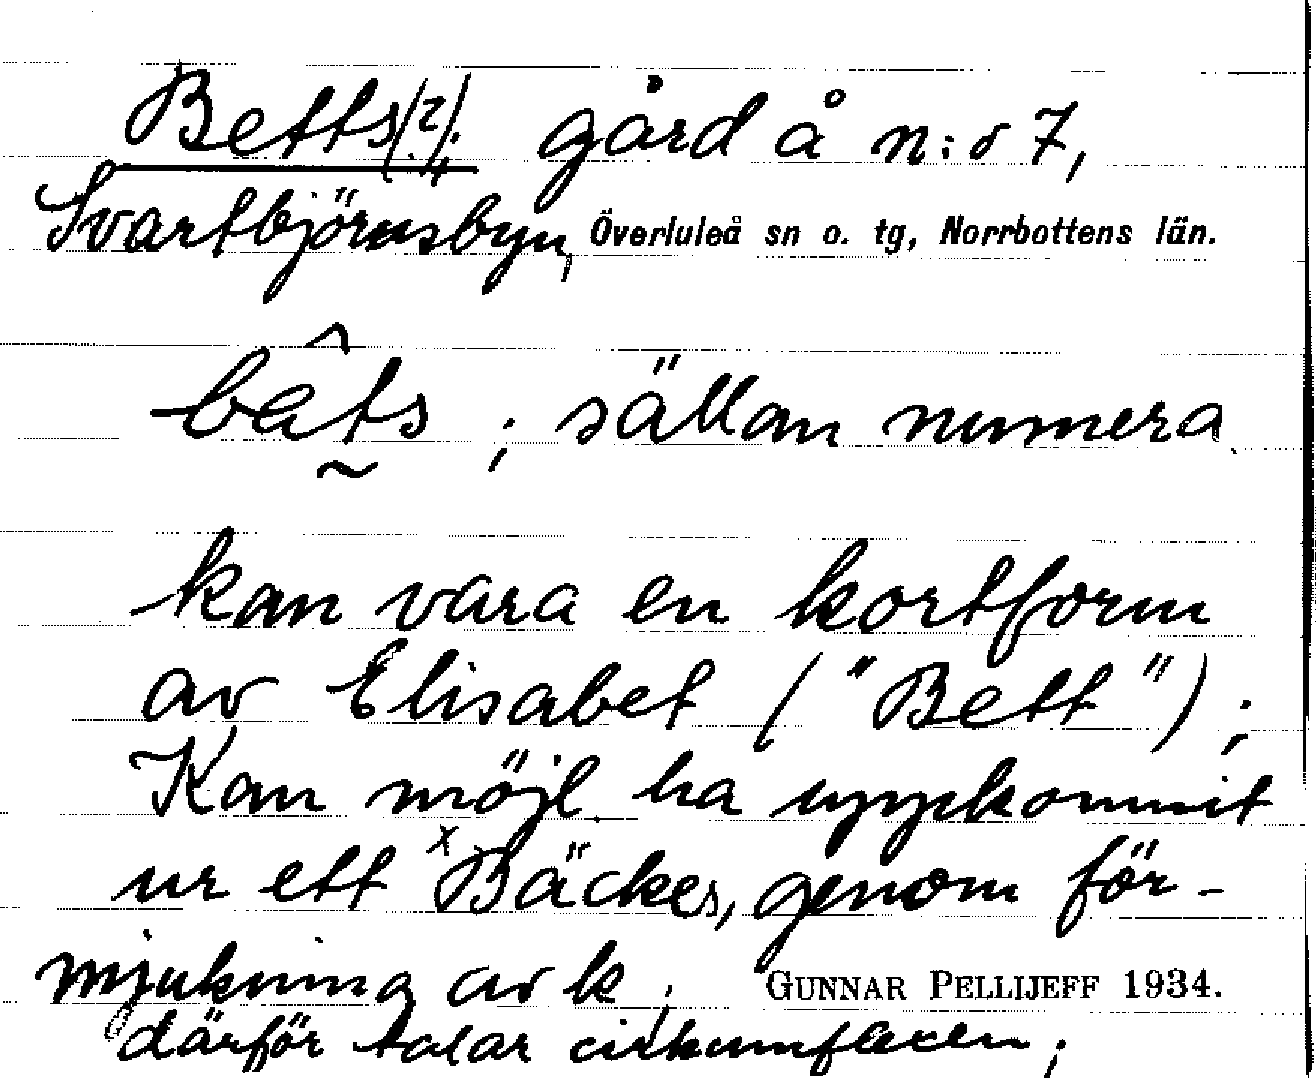 Betts(?), gård å n:o 7,
Svartbjörnsbyn, Överluleå sn o. tg, Norrbottens län.
bêt̰s ; sällan numera
kan vara en kortform
av Elisabet ("Bett") ;
Kan möjl. ha uppkommit
ur ett ˣBäckes, genom för-
mjukning av k ; GUNNAR PELLIJEFF 1934.
därför talar cirkumflexen ;